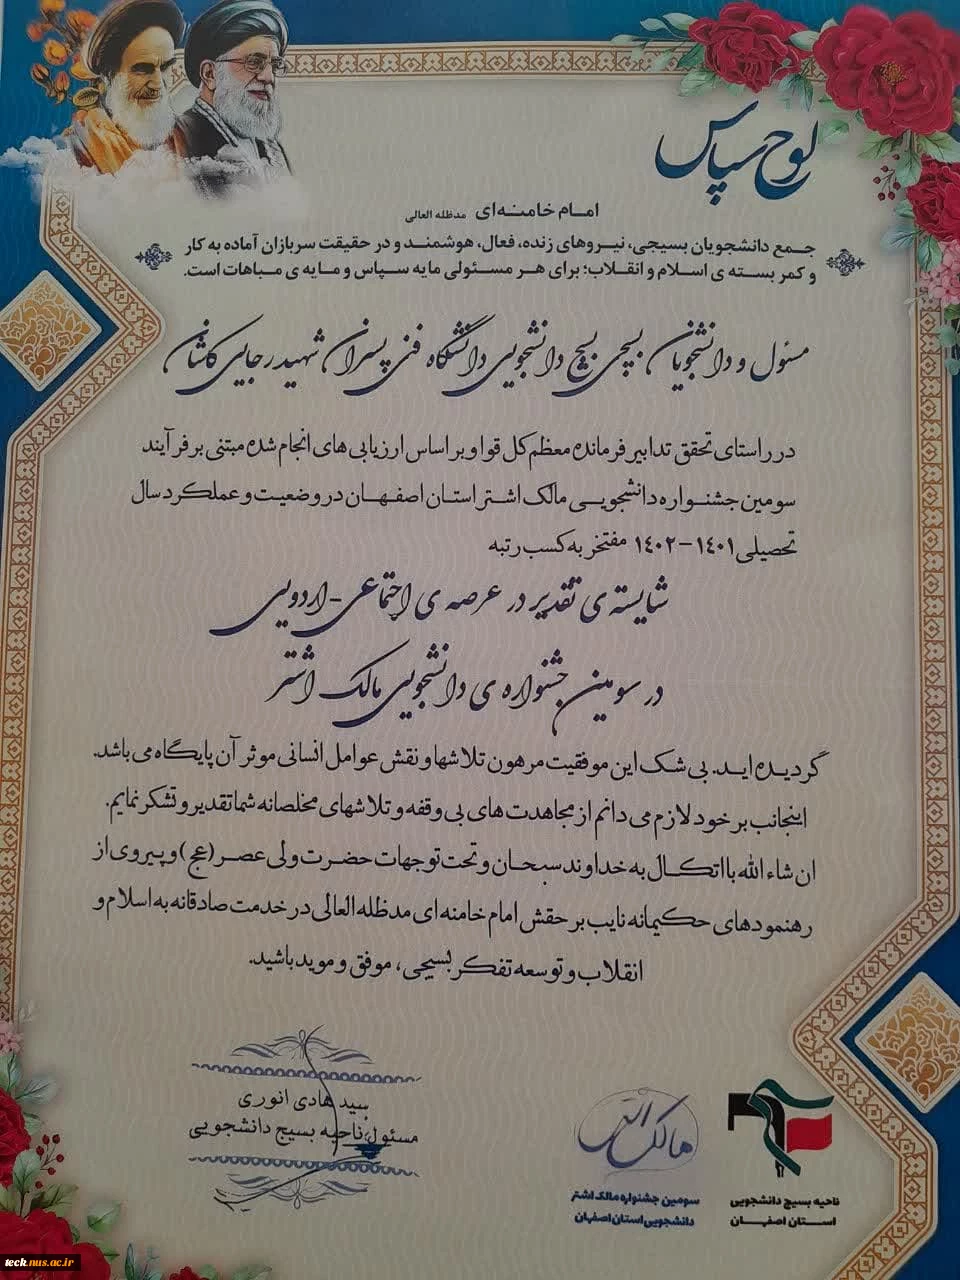 لوح سپاس
امام خامنه‌ای مدظله العالی
جمع دانشجویان بسیجی، نیروهای زنده، فعال، هوشمند و در حقیقت سربازان آماده به کار
و کمر بسته ی اسلام و انقلاب؛ برای هر مسئولی مایه سپاس و مایه ی مباهات است.
مسئول و دانشجویان بسیجی بسیج دانشجویی دانشگاه فنی پسران شهید رجایی کاشان
در راستای تحقق تدابیر فرمانده معظم کل قوا و بر اساس ارزیابی های انجام شده مبتنی بر فرآیند
سومین جشنواره دانشجویی مالک اشتر استان اصفهان در وضعیت و عملکرد سال
تحصیلی ۱۴۰۱-۱۴۰۲ مفتخر به کسب رتبه
شایسته ی تقدیر در عرصه ی اجتماعی-اردویی
در سومین جشنواره ی دانشجویی مالک اشتر
گردیده اید. بی شک این موفقیت مرهون تلاشها و نقش عوامل انسانی موثر آن پایگاه می باشد.
اینجانب بر خود لازم می دانم از مجاهدت های بی وقفه و تلاشهای مخلصانه شما تقدیر و تشکر نمایم.
ان شاء الله با اتکال به خداوند سبحان و تحت توجهات حضرت ولی عصر (عج) و پیروی از
رهنمودهای حکیمانه نایب بر حقش امام خامنه ای مدظله العالی در خدمت صادقانه به اسلام و
انقلاب و توسعه تفکر بسیجی، موفق و موید باشید.
سید هادی انوری
مسئول ناحیه بسیج دانشجویی
مالک اشتر
سومین جشنواره مالک اشتر
دانشجویی استان اصفهان
ناحیه بسیج دانشجویی
استان اصفهان
teck.nus.ac.ir